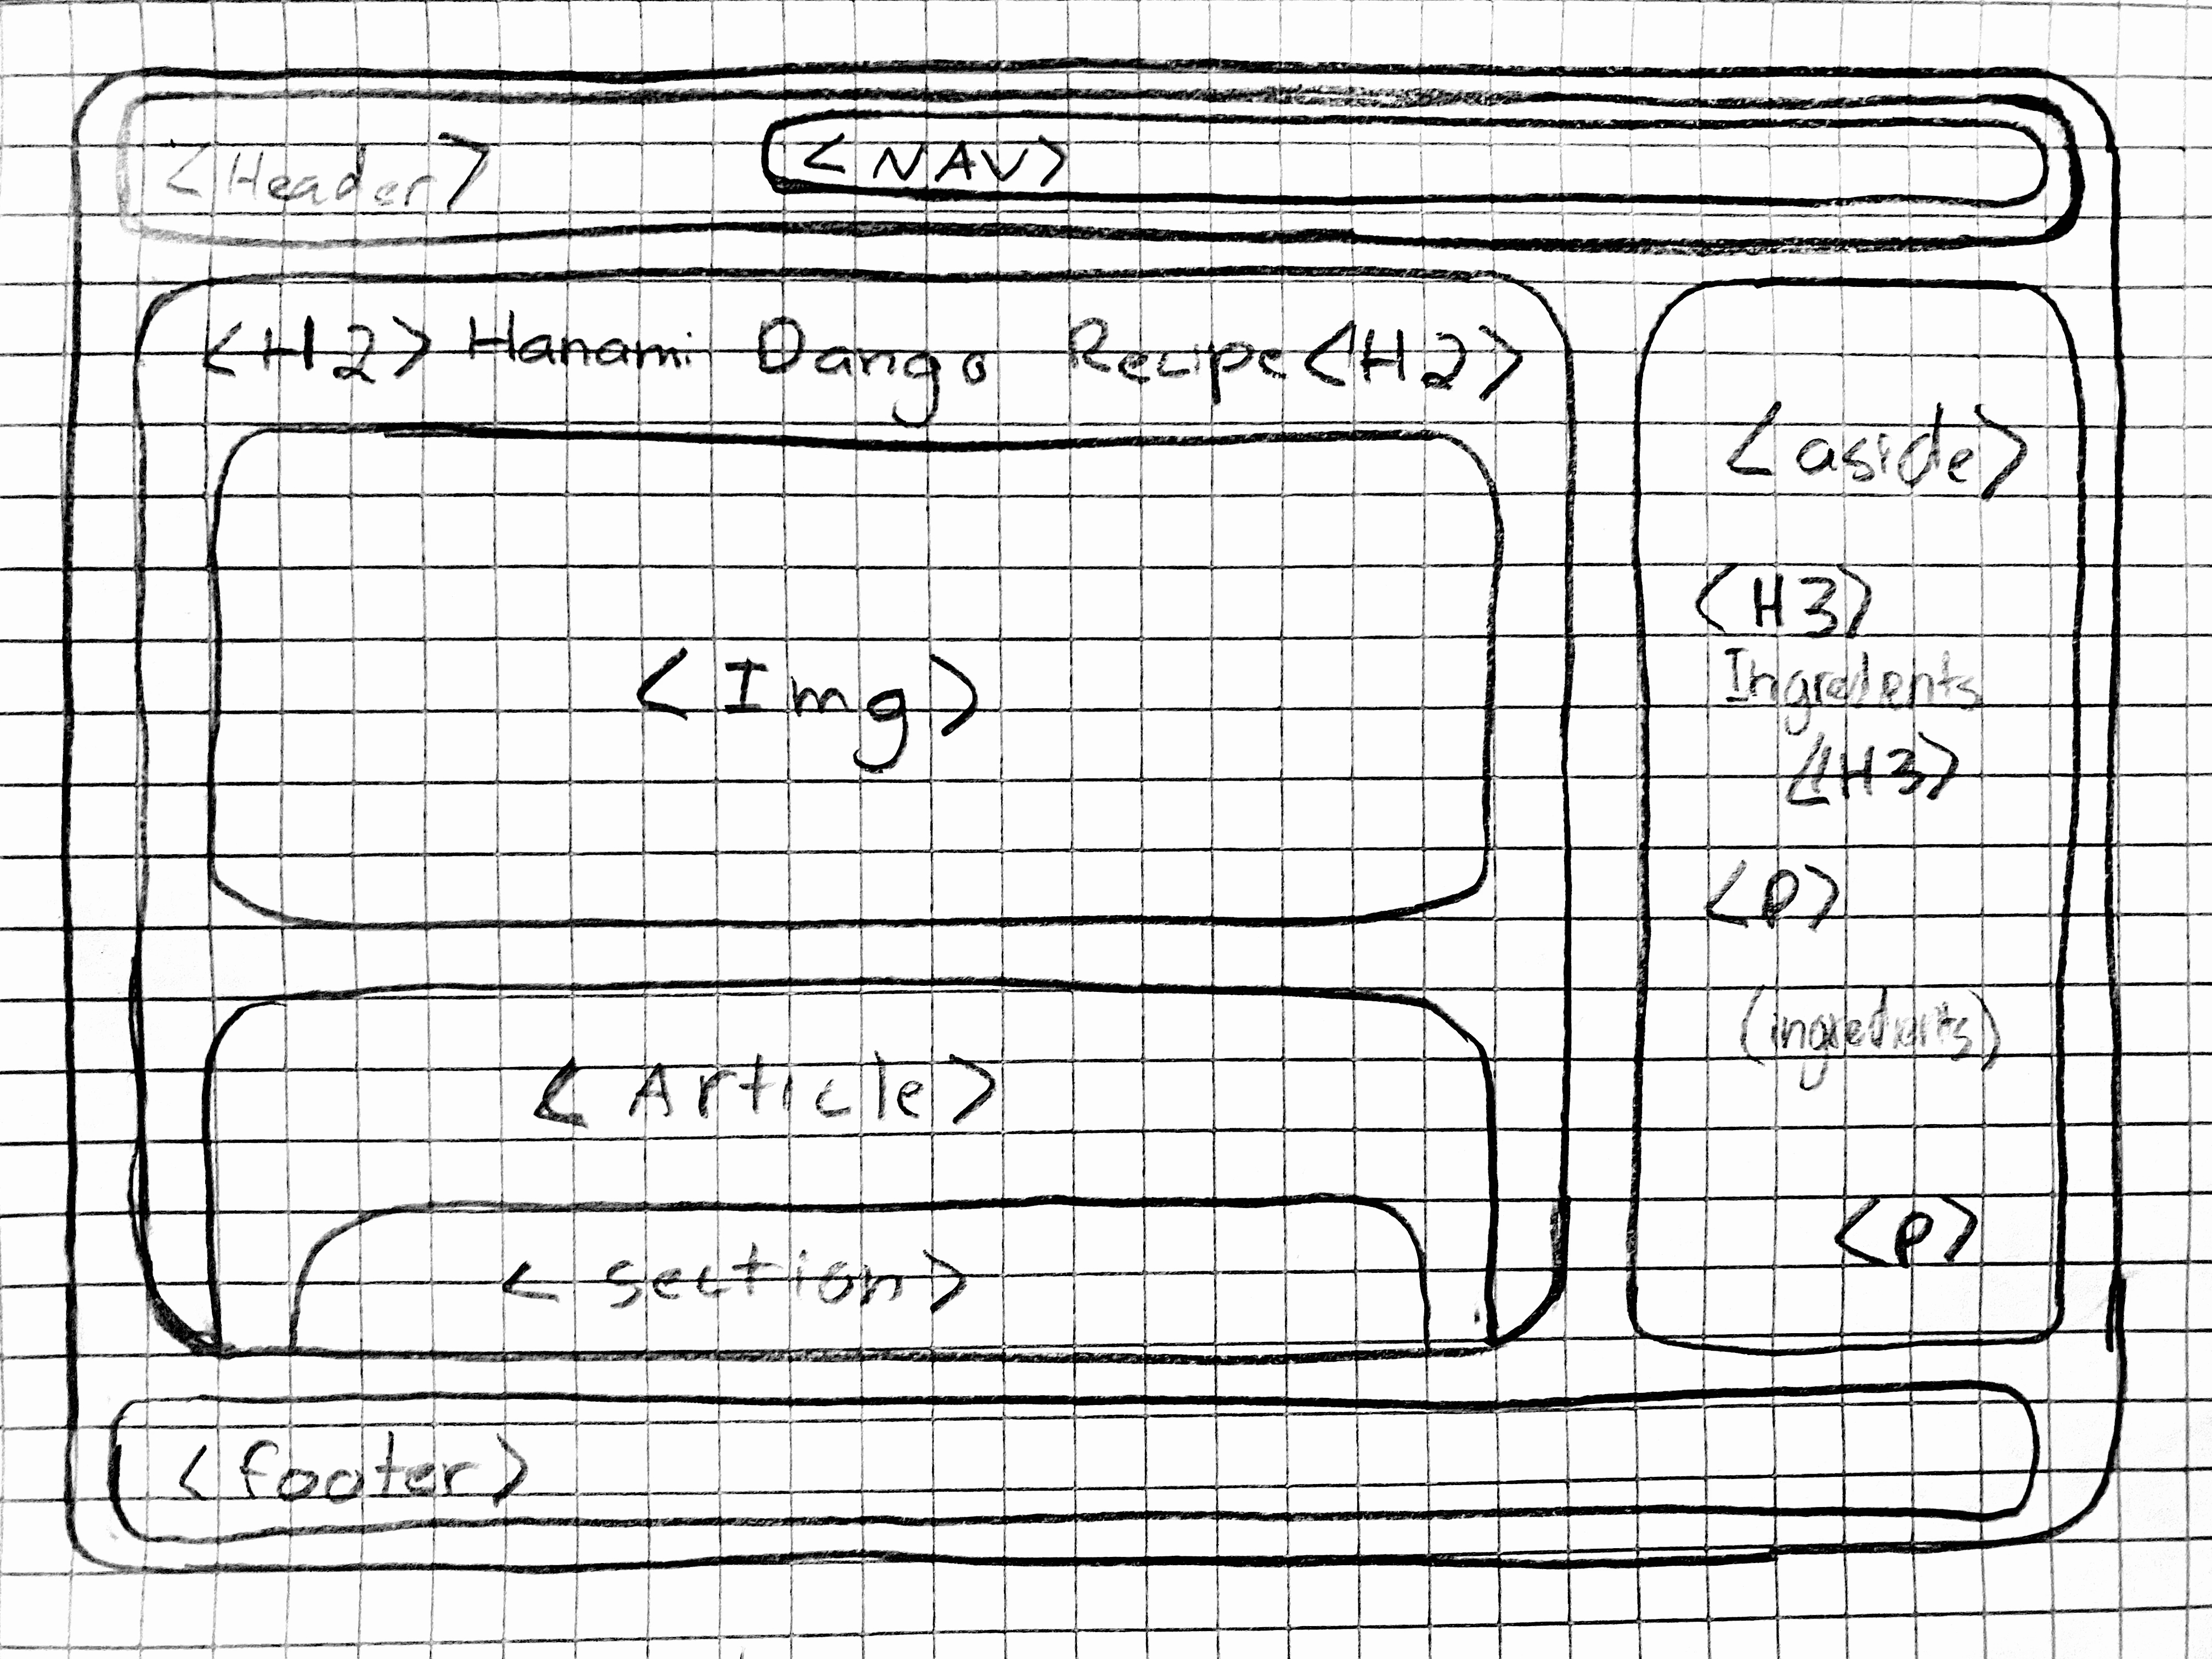 <Header>
<NAV>
<H2> Hanami Dango Recipe<H2>
<Img>
<Article>
<section>
<aside>
<H3>
Ingredients
<H3>
<P>
(ingredients)
<P>
<footer>